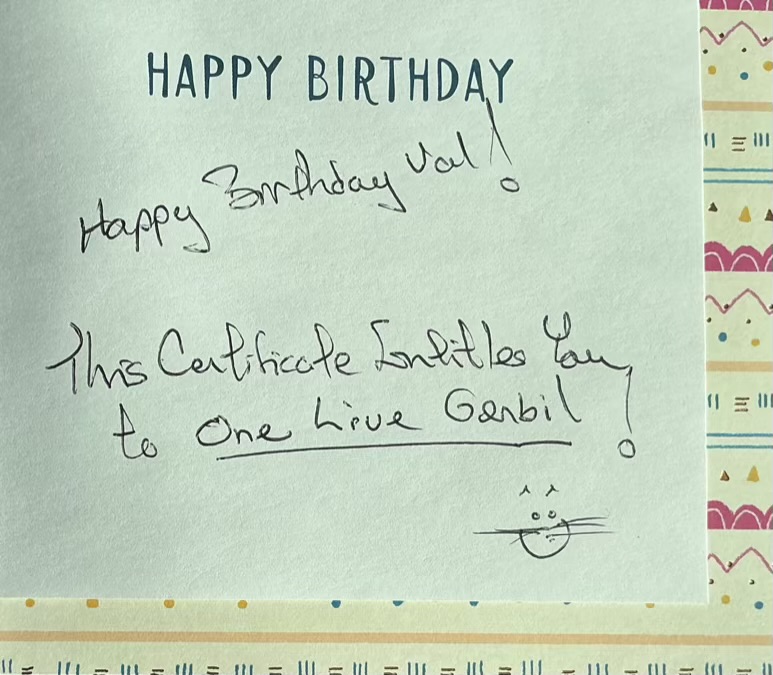 HAPPY BIRTHDAY
Happy Birthday Val!
This Certificate Entitles You
to One Live Gerbil!